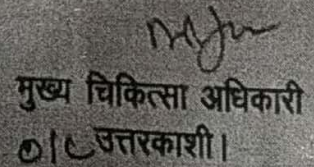 मुख्य चिकित्सा अधिकारी
उत्तरकाशी।